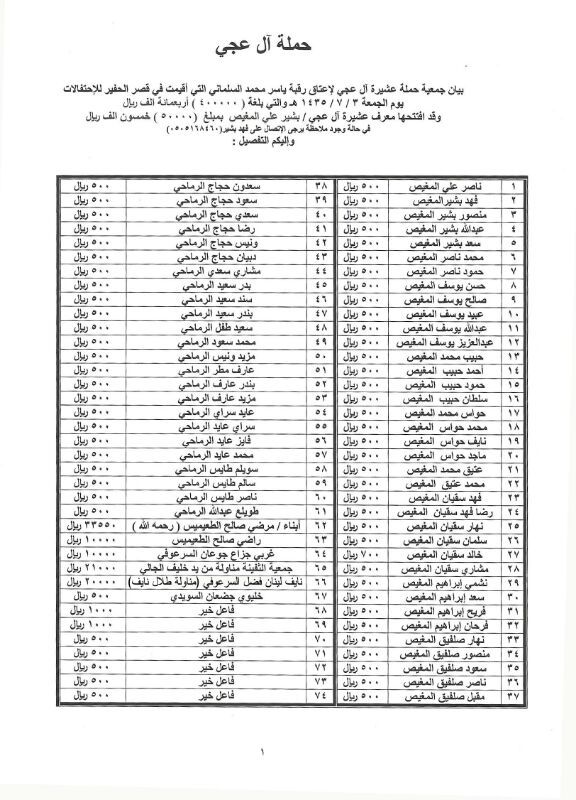 حملة آل عجي
بيان جمعية حملة عشيرة آل عجي لإعتاق رقبة ياسر محمد السلماني التي أقيمت في قصر الحفير للإحتفالات
يوم الجمعة ٣ / ٧ / ١٤٣٥ هـ والتي بلغة ( ٤٠٠٠٠٠ ) أربعمائة الف ريال
وقد افتتحها معرف عشيرة آل عجي / بشير علي المغيص بمبلغ ( ٥٠٠٠٠ ) خمسون الف ريال
في حالة وجود ملاحظة يرجى الإتصال على فهد بشير (٠٥٠٥١٦٨٤٦٠)
وإليكم التفصيل :
١ ناصر علي المغيص ٥٠٠ ريال ٣٨ سعدون حجاج الرماحي ٥٠٠ ريال
٢ فهد بشير المغيص ٥٠٠ ريال ٣٩ سعود حجاج الرماحي ٥٠٠ ريال
٣ منصور بشير المغيص ٥٠٠ ريال ٤٠ سعدي حجاج الرماحي ٥٠٠ ريال
٤ عبدالله بشير المغيص ٥٠٠ ريال ٤١ رضا حجاج الرماحي ٥٠٠ ريال
٥ سعد بشير المغيص ٥٠٠ ريال ٤٢ ونيس حجاج الرماحي ٥٠٠ ريال
٦ محمد ناصر المغيص ٥٠٠ ريال ٤٣ دبيان حجاج الرماحي ٥٠٠ ريال
٧ حمود ناصر المغيص ٥٠٠ ريال ٤٤ مشاري سعدي الرماحي ٥٠٠ ريال
٨ حسن يوسف المغيص ٥٠٠ ريال ٤٥ بدر سعيد الرماحي ٥٠٠ ريال
٩ صالح يوسف المغيص ٥٠٠ ريال ٤٦ سند سعيد الرماحي ٥٠٠ ريال
١٠ عبيد يوسف المغيص ٥٠٠ ريال ٤٧ بندر سعيد الرماحي ٥٠٠ ريال
١١ عبدالله يوسف المغيص ٥٠٠ ريال ٤٨ سعيد طفل الرماحي ٥٠٠ ريال
١٢ عبدالعزيز يوسف المغيص ٥٠٠ ريال ٤٩ محمد سعود الرماحي ٥٠٠ ريال
١٣ حبيب محمد المغيص ٥٠٠ ريال ٥٠ مزيد ونيس الرماحي ٥٠٠ ريال
١٤ أحمد حبيب المغيص ٥٠٠ ريال ٥١ عارف مطر الرماحي ٥٠٠ ريال
١٥ حمود حبيب المغيص ٥٠٠ ريال ٥٢ بندر عارف الرماحي ٥٠٠ ريال
١٦ سلطان حبيب المغيص ٥٠٠ ريال ٥٣ مزيد عارف الرماحي ٥٠٠ ريال
١٧ حواس محمد المغيص ٥٠٠ ريال ٥٤ عايد سراي الرماحي ٥٠٠ ريال
١٨ محمد حواس المغيص ٥٠٠ ريال ٥٥ سراي عايد الرماحي ٥٠٠ ريال
١٩ نايف حواس المغيص ٥٠٠ ريال ٥٦ فايز عايد الرماحي ٥٠٠ ريال
٢٠ ماجد حواس المغيص ٥٠٠ ريال ٥٧ محمد عايد الرماحي ٥٠٠ ريال
٢١ عتيق محمد المغيص ٥٠٠ ريال ٥٨ سويلم طايس الرماحي ٥٠٠ ريال
٢٢ محمد عتيق المغيص ٥٠٠ ريال ٥٩ سالم طايس الرماحي ٥٠٠ ريال
٢٣ فهد سفيان المغيص ٥٠٠ ريال ٦٠ ناصر طايس الرماحي ٥٠٠ ريال
٢٤ رضا فهد سفيان المغيص ٥٠٠ ريال ٦١ طويلع عبدالله الرماحي ٥٠٠ ريال
٢٥ نهار سفيان المغيص ٥٠٠ ريال ٦٢ أبناء / مرضي صالح الطعيميس ( رحمه الله ) ٣٣٥٥٠ ريال
٢٦ سلمان سفيان المغيص ٥٠٠ ريال ٦٣ راضي صالح الطعيميس ١٠٠٠٠ ريال
٢٧ خالد سفيان المغيص ٧٠٠ ريال ٦٤ غربي جزاع جوعان السرعوفي ١٠٠٠٠ ريال
٢٨ مشاري سفيان المغيص ٥٠٠ ريال ٦٥ جمعية الثفينة مناولة من يد خليف الجالي ٢١٠٠٠ ريال
٢٩ نشمي إبراهيم المغيص ٥٠٠ ريال ٦٦ نايف فضل السرعوفي (مناولة طلال نايف) ٢٠٠٠٠ ريال
٣٠ سعد إبراهيم المغيص ٥٠٠ ريال ٦٧ خليوي جضعان السويدي ٥٠٠ ريال
٣١ فريح إبراهيم المغيص ٥٠٠ ريال ٦٨ فاعل خير ١٠٠٠ ريال
٣٢ فرحان إبراهيم المغيص ٥٠٠ ريال ٦٩ فاعل خير ١٠٠٠ ريال
٣٣ نهار صلفيق المغيص ٥٠٠ ريال ٧٠ فاعل خير ٥٠٠ ريال
٣٤ منصور صلفيق المغيص ٥٠٠ ريال ٧١ فاعل خير ٥٠٠ ريال
٣٥ سعود صلفيق المغيص ٥٠٠ ريال ٧٢ فاعل خير ٥٠٠ ريال
٣٦ ناصر صلفيق المغيص ٥٠٠ ريال ٧٣ فاعل خير ٥٠٠ ريال
٣٧ مقبل صلفيق المغيص ٥٠٠ ريال ٧٤ فاعل خير ٥٠٠ ريال
١